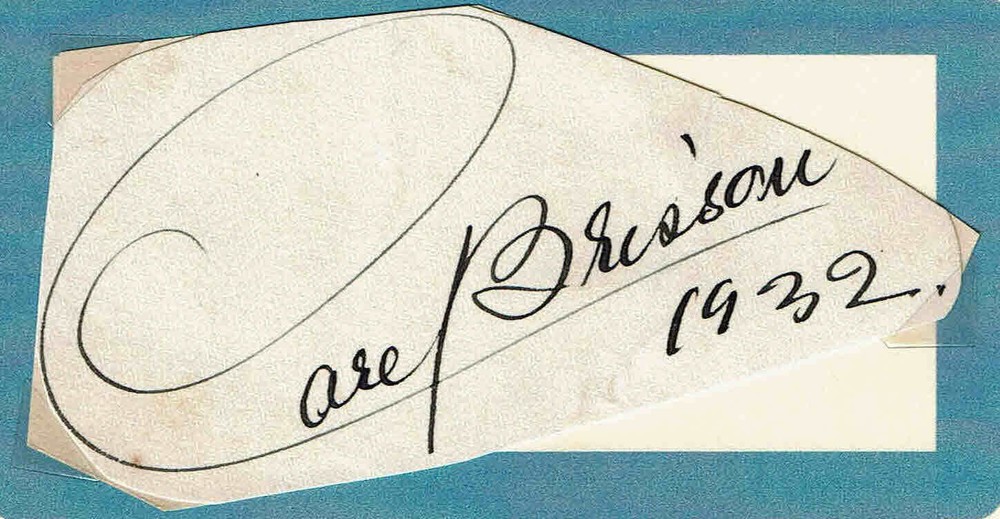 Carl Brisson
1932.